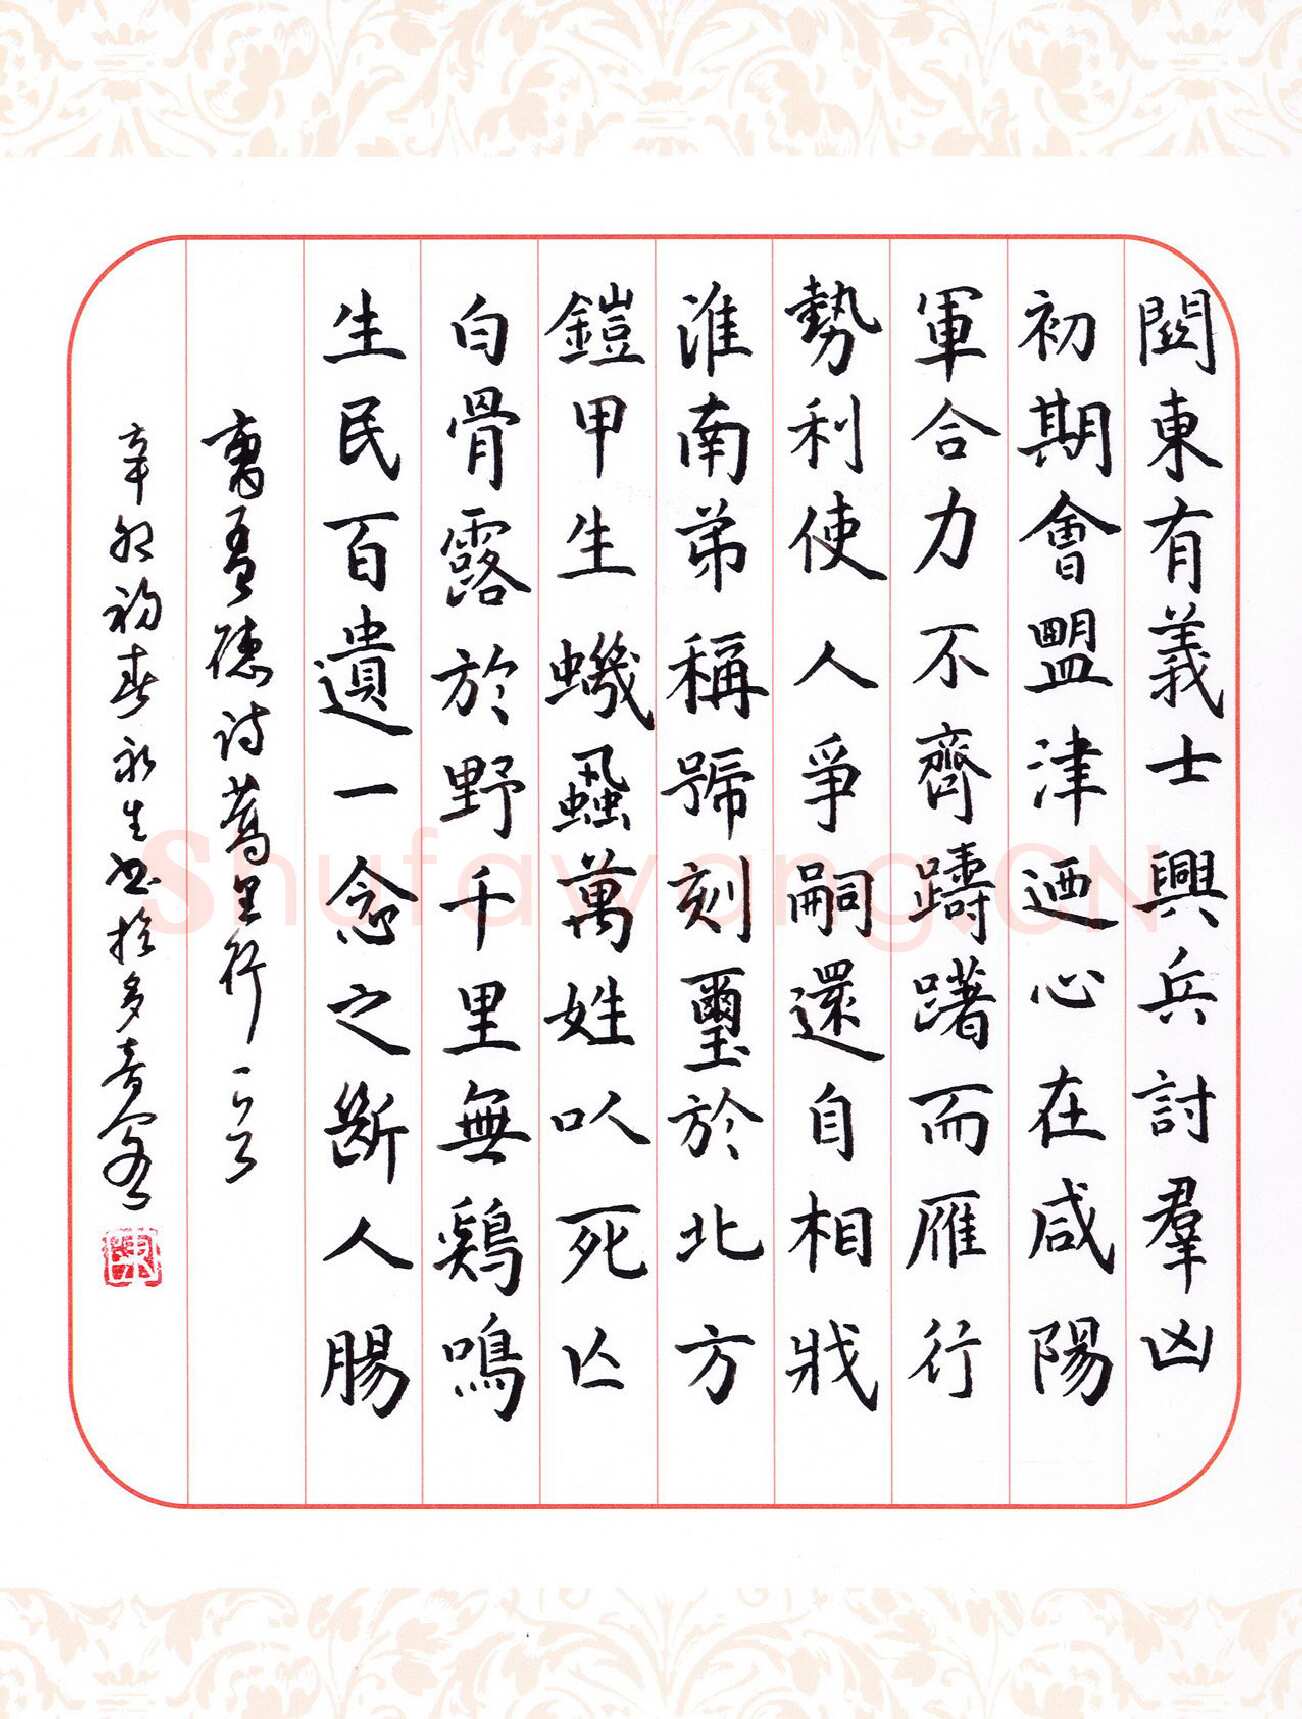 関東有義士興兵討羣凶
初期會盟津迺心在咸陽
軍合力不齊躊躇而雁行
勢利使人爭嗣還自相戕
淮南弟稱號刻璽於北方
鎧甲生蟣蝨萬姓以死亡
白骨露於野千里無鷄鳴
生民百遺一念之斷人腸
曹孟德詩蒿里行一首
辛卯初春永生書於多音齋
Shufawang.CN